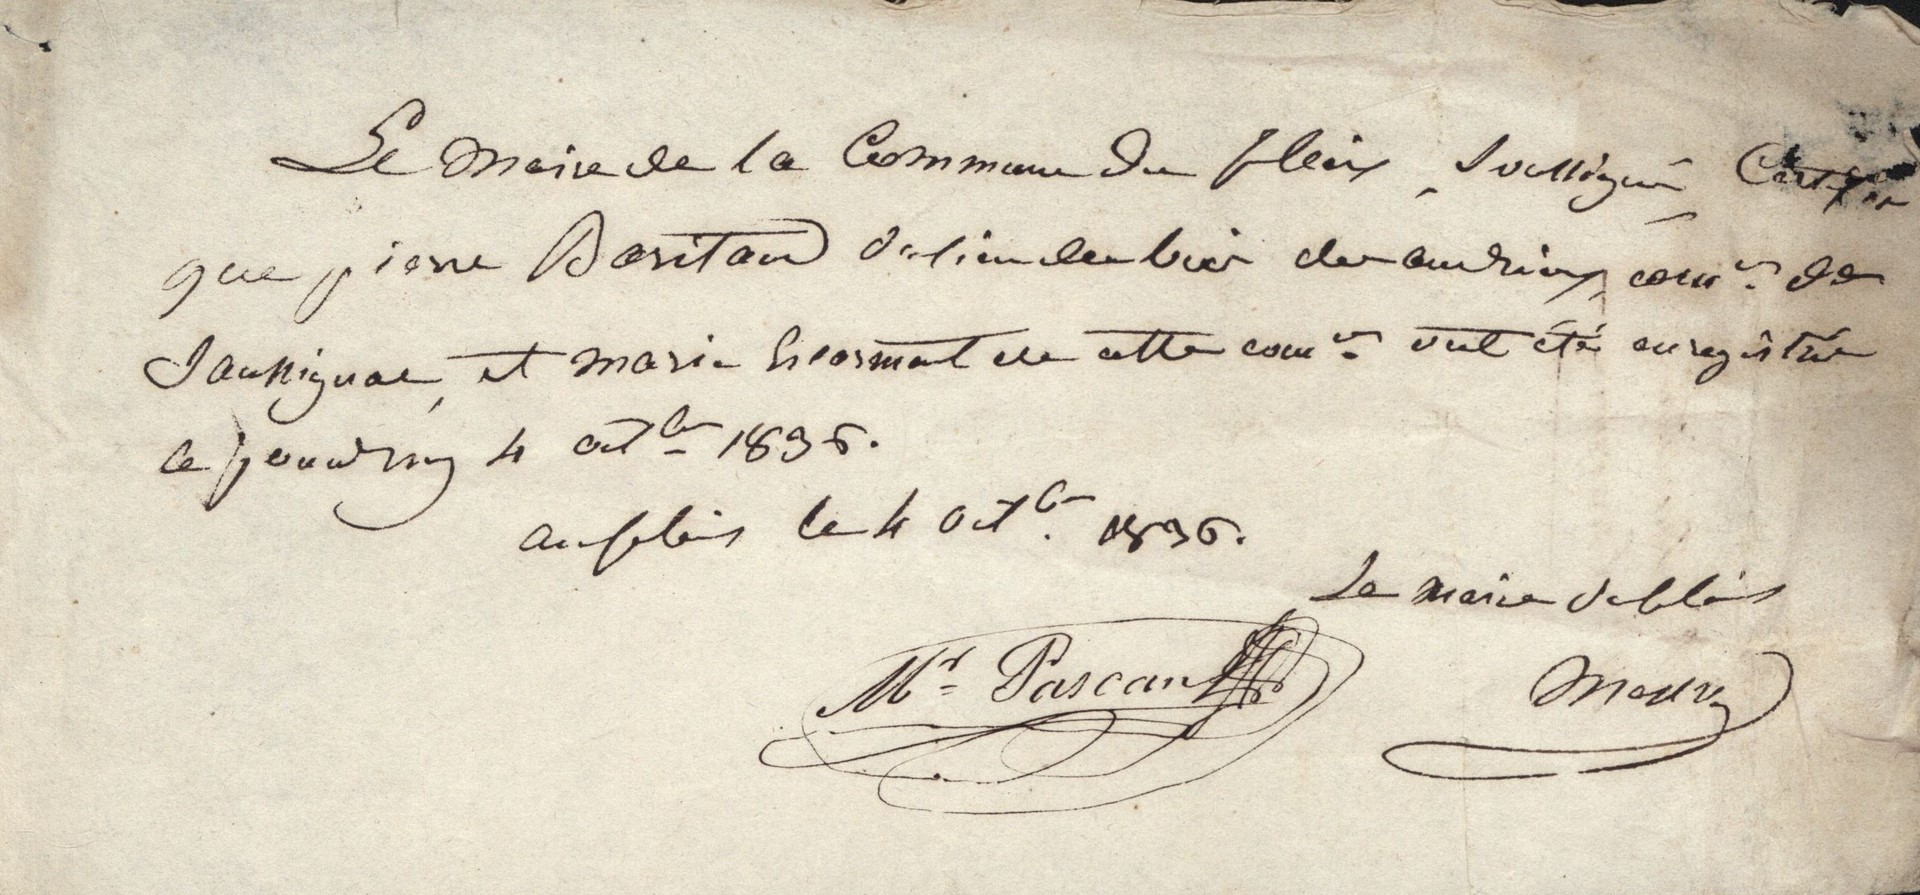 Le Maire de la Commune du fleix, Soussigné, Certifie
que pierre Baritaud du lieu de com.ne de
Saussignac, et marie de cette com.ne ont été enregistré
ce jourd'huy 4 oct.bre 1836.
au fleix le 4 Oct.bre 1836.
Le maire du fleix
M.r Pascau